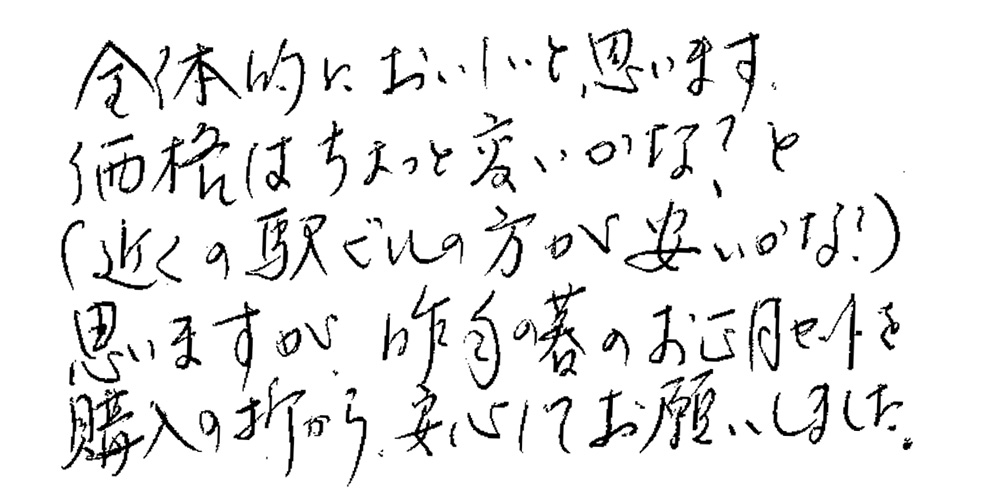 全体的においしいと思います。
価格はちょっと変いかな?と
(近くの駅ビルの方が安いかな?)
思いますが、昨年の暮のお正月セットを
購入の折から、安心してお願いしました。